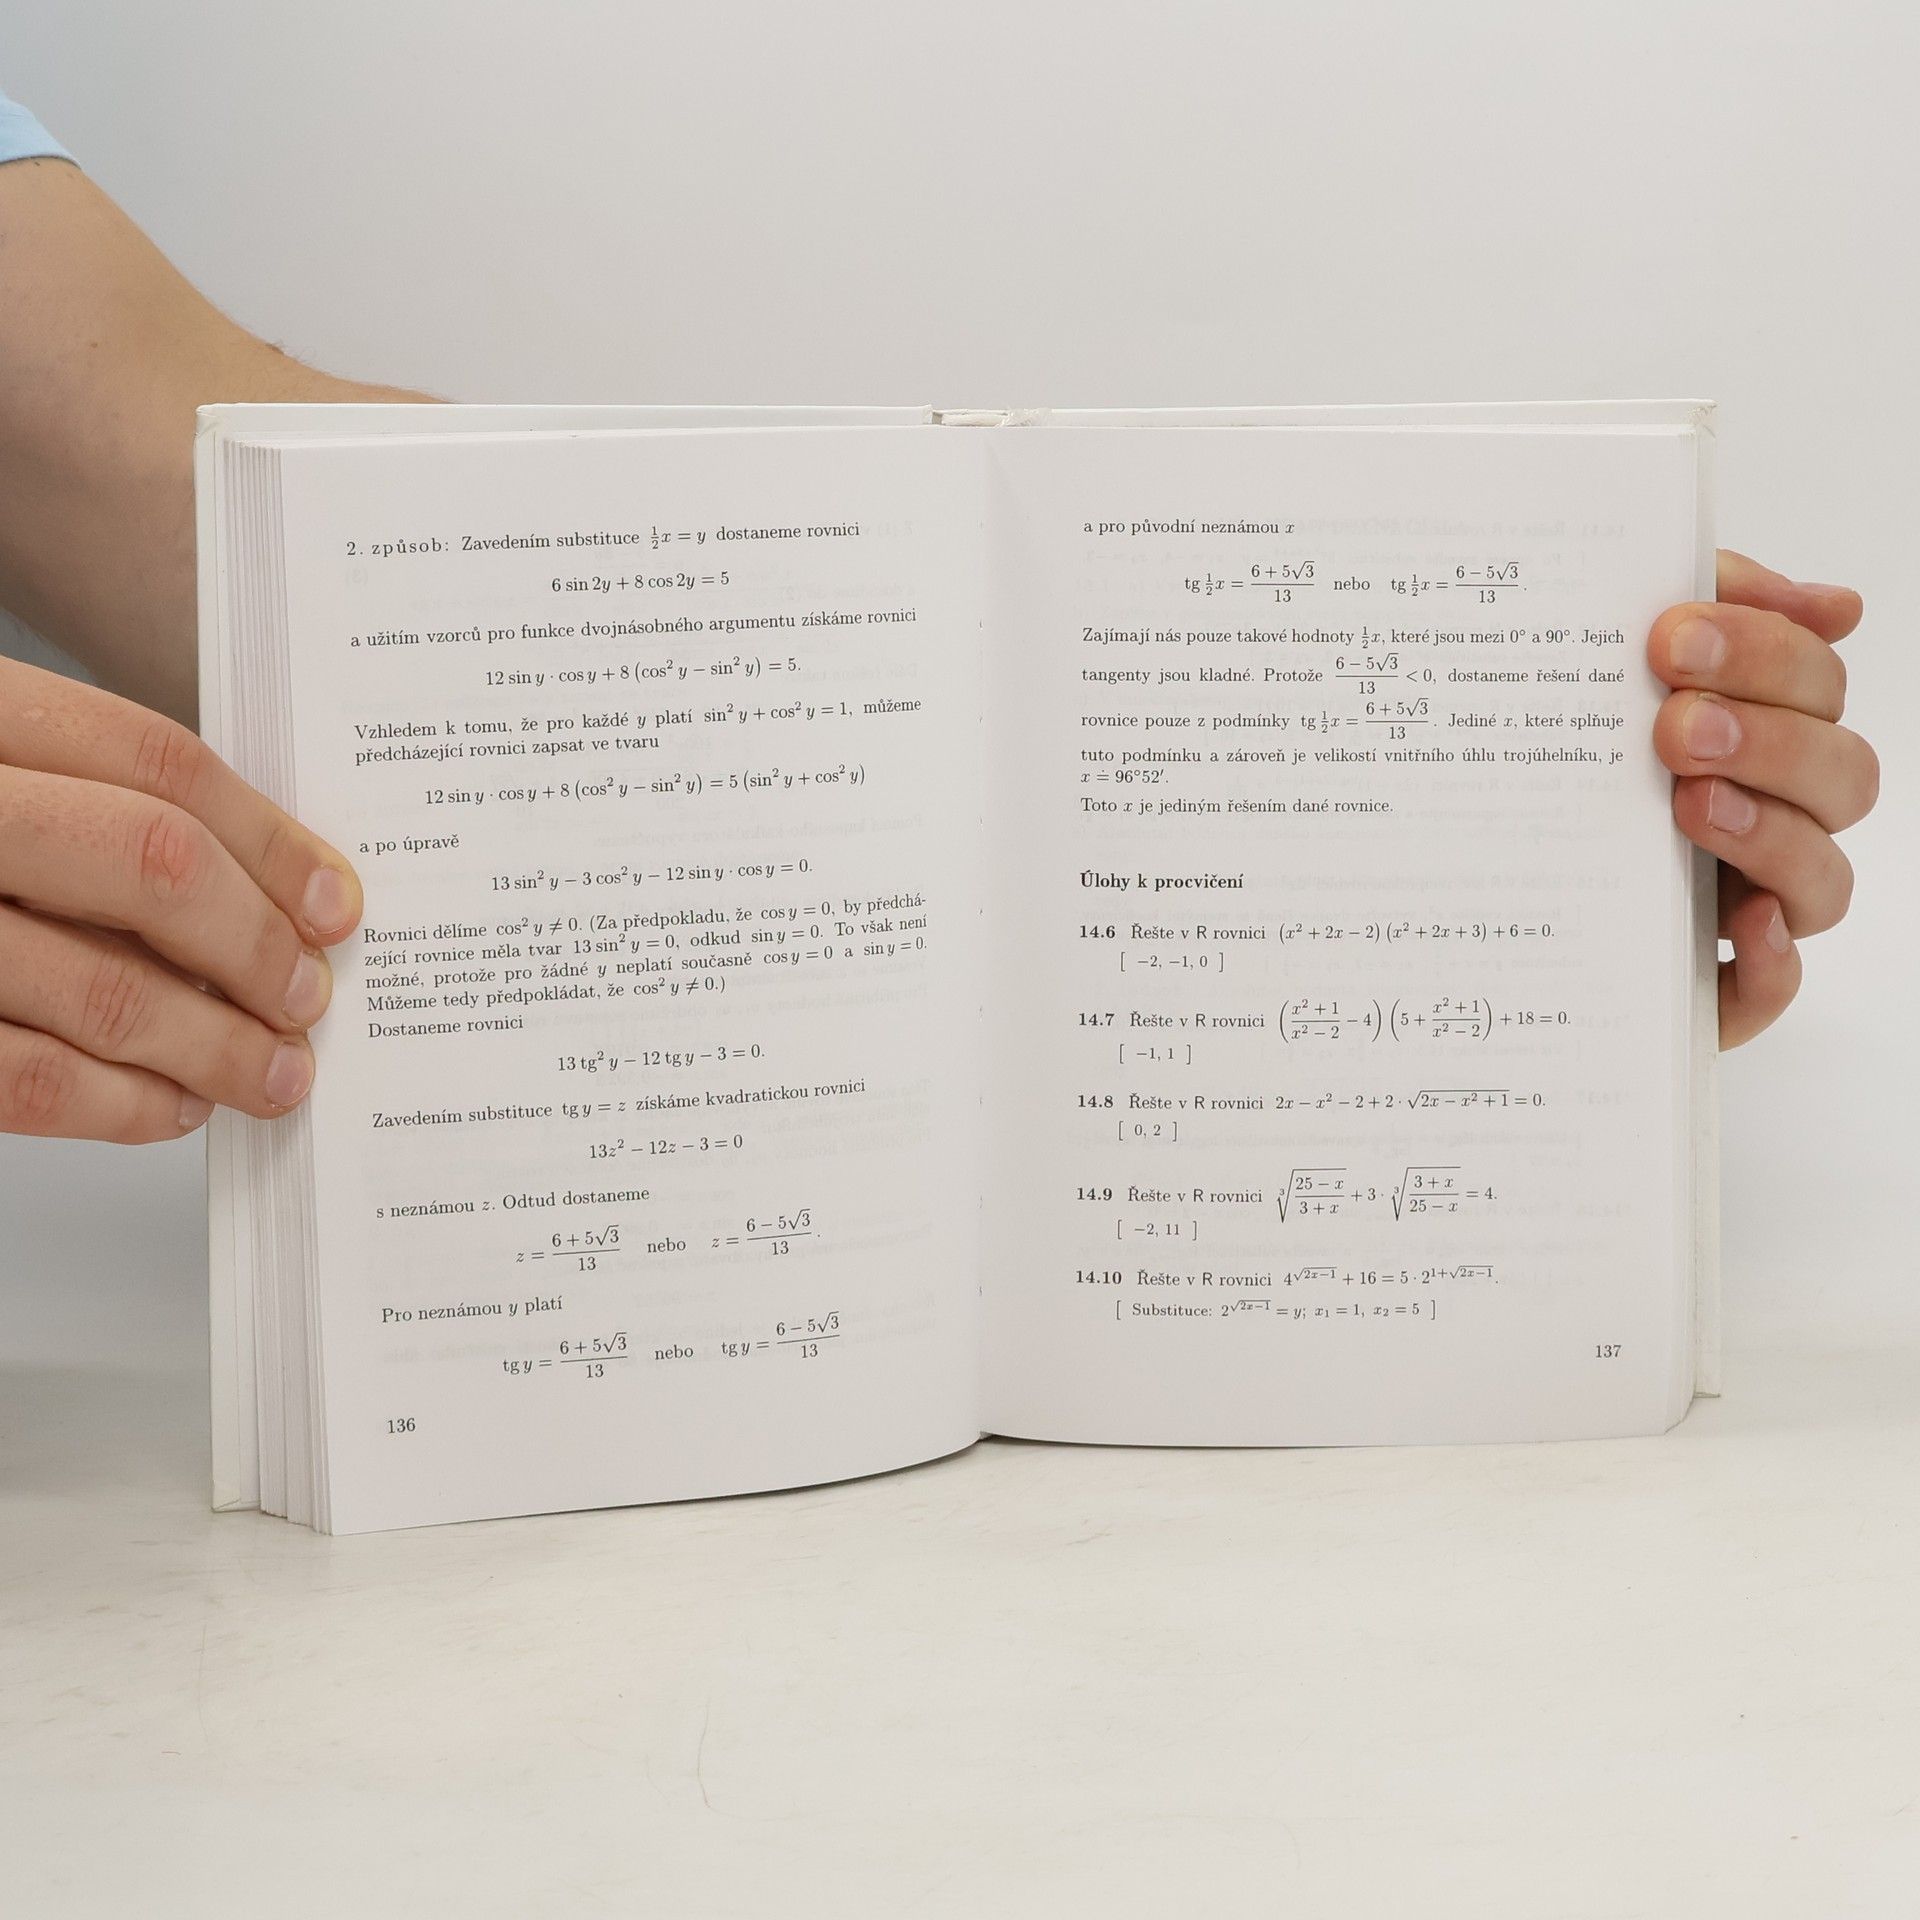 2. způsob: Zavedením substituce ½x = y dostaneme rovnici
6 sin 2y + 8 cos 2y = 5
a užitím vzorců pro funkce dvojnásobného argumentu získáme rovnici
12 sin y · cos y + 8 (cos² y − sin² y) = 5.
Vzhledem k tomu, že pro každé y platí sin² y + cos² y = 1, můžeme
předcházející rovnici zapsat ve tvaru
12 sin y · cos y + 8 (cos² y − sin² y) = 5 (sin² y + cos² y)
a po úpravě
13 sin² y − 3 cos² y − 12 sin y · cos y = 0.
Rovnici dělíme cos² y ≠ 0. (Za předpokladu, že cos y = 0, by předchá-
zející rovnice měla tvar 13 sin² y = 0, odkud sin y = 0. To však není
možné, protože pro žádné y neplatí současně cos y = 0 a sin y = 0.
Můžeme tedy předpokládat, že cos² y ≠ 0.)
Dostaneme rovnici
13 tg² y − 12 tg y − 3 = 0.
Zavedením substituce tg y = z získáme kvadratickou rovnici
13z² − 12z − 3 = 0
s neznámou z. Odtud dostaneme
z = (6 + 5√3)/13 nebo z = (6 − 5√3)/13.
Pro neznámou y platí
tg y = (6 + 5√3)/13 nebo tg y = (6 − 5√3)/13
136
a pro původní neznámou x
tg ½x = (6 + 5√3)/13 nebo tg ½x = (6 − 5√3)/13.
Zajímají nás pouze takové hodnoty ½x, které jsou mezi 0° a 90°. Jejich
tangenty jsou kladné. Protože (6 − 5√3)/13 < 0, dostaneme řešení dané
rovnice pouze z podmínky tg ½x = (6 + 5√3)/13. Jediné x, které splňuje
tuto podmínku a zároveň je velikostí vnitřního úhlu trojúhelníku, je
x ≐ 96°52′.
Toto x je jediným řešením dané rovnice.
Úlohy k procvičení
14.6 Řešte v R rovnici (x² + 2x − 2) (x² + 2x + 3) + 6 = 0.
[ −2, −1, 0 ]
14.7 Řešte v R rovnici ((x² + 1)/(x² − 2) − 4) (5 + (x² + 1)/(x² − 2)) + 18 = 0.
[ −1, 1 ]
14.8 Řešte v R rovnici 2x − x² − 2 + 2 · √(2x − x² + 1) = 0.
[ 0, 2 ]
14.9 Řešte v R rovnici ∛((25 − x)/(3 + x)) + 3 · ∛((3 + x)/(25 − x)) = 4.
[ −2, 11 ]
14.10 Řešte v R rovnici 4^√(2x−1) + 16 = 5 · 2^(1+√(2x−1)).
[ Substituce: 2^√(2x−1) = y; x₁ = 1, x₂ = 5 ]
137